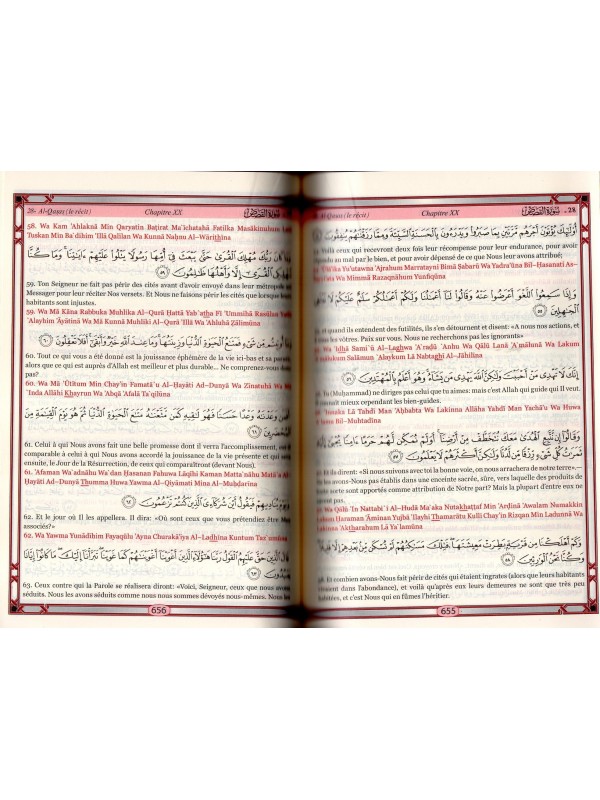 28- Al-Qaṣaṣ (le récit) Chapitre XX سورة القصص ـ 28
أُوْلَٰٓئِكَ يُؤْتَوْنَ أَجْرَهُم مَّرَّتَيْنِ بِمَا صَبَرُوا۟ وَيَدْرَءُونَ بِٱلْحَسَنَةِ ٱلسَّيِّئَةَ وَمِمَّا رَزَقْنَٰهُمْ يُنفِقُونَ ٥٤
Voilà ceux qui recevront deux fois leur récompense pour leur endurance, pour avoir
au mal par le bien, et pour avoir dépensé de ce que Nous leur avons attribué;
'Ūlā'ika Yu'utawna 'Ajrahum Marratayni Bimā Ṣabarū Wa Yadra'ūna Bil–Ḥasanati As-
Wa Mimmā Razaqnāhum Yunfiqūna
وَإِذَا سَمِعُوا۟ ٱللَّغْوَ أَعْرَضُوا۟ عَنْهُ وَقَالُوا۟ لَنَآ أَعْمَٰلُنَا وَلَكُمْ أَعْمَٰلُكُمْ سَلَٰمٌ عَلَيْكُمْ لَا نَبْتَغِى
ٱلْجَٰهِلِينَ ٥٥
et quand ils entendent des futilités, ils s'en détournent et disent: «A nous nos actions, et
vos actions. Paix sur vous. Nous ne recherchons pas les ignorants».
Wa 'Idhā Sami`ū Al–Laghwa 'A`raḍū `Anhu Wa Qālū Lanā 'A`mālunā Wa Lakum
'A`mālukum Salāmun `Alaykum Lā Nabtaghī Al–Jāhilīna
إِنَّكَ لَا تَهْدِى مَنْ أَحْبَبْتَ وَلَٰكِنَّ ٱللَّهَ يَهْدِى مَن يَشَآءُ وَهُوَ أَعْلَمُ بِٱلْمُهْتَدِينَ ٥٦
Tu (Muḥammad) ne diriges pas celui que tu aimes; mais c'est Allah qui guide qui Il veut.
connaît mieux cependant les bien-guidés.
'Innaka Lā Tahdī Man 'Aḥbabta Wa Lakinna Allāha Yahdī Man Yachā'u Wa Huwa
Bil–Muhtadīna
وَقَالُوٓا۟ إِن نَّتَّبِعِ ٱلْهُدَىٰ مَعَكَ نُتَخَطَّفْ مِنْ أَرْضِنَآ أَوَلَمْ نُمَكِّن لَّهُمْ حَرَمًا ءَامِنًا يُجْبَىٰٓ
ثَمَرَٰتُ كُلِّ شَىْءٍ رِّزْقًا مِّن لَّدُنَّا وَلَٰكِنَّ أَكْثَرَهُمْ لَا يَعْلَمُونَ ٥٧
Et ils dirent: «Si nous suivons avec toi la bonne voie, on nous arrachera de notre terre».–
les avons-Nous pas établis dans une enceinte sacrée, sûre, vers laquelle des produits de
sorte sont apportés comme attribution de Notre part? Mais la plupart d'entre eux ne
pas.
Wa Qālū 'In Nattabi`i Al–Hudā Ma`aka Nutakhaṭṭaf Min 'Arḍinā 'Awalam Numakkin
Lahum Ḥaraman 'Āminan Yujbá 'Ilayhi Thamarātu Kulli Chay'in Rizqan Min Ladunnā Wa
'Aktharahum Lā Ya`lamūna
وَكَمْ أَهْلَكْنَا مِن قَرْيَةٍۭ بَطِرَتْ مَعِيشَتَهَا فَتِلْكَ مَسَٰكِنُهُمْ لَمْ تُسْكَن مِّنۢ بَعْدِهِمْ إِلَّا
وَكُنَّا نَحْنُ ٱلْوَٰرِثِينَ ٥٨
58. Et combien avons-Nous fait périr de cités qui étaient ingrates (alors que leurs habitants
dans l'abondance), et voilà qu'après eux leurs demeures ne sont que très peu
habitées, et c'est Nous qui en fûmes l'héritier.
655
28- Al-Qaṣaṣ (le récit) Chapitre XX
58. Wa Kam 'Ahlaknā Min Qaryatin Baṭirat Ma`īchatahā Fatilka Masākinuhum
Tuskan Min Ba`dihim 'Illā Qalīlan Wa Kunnā Naḥnu Al–Wārithīna
كَانَ رَبُّكَ مُهْلِكَ ٱلْقُرَىٰ حَتَّىٰ يَبْعَثَ فِىٓ أُمِّهَا رَسُولًا يَتْلُوا۟ عَلَيْهِمْ ءَايَٰتِنَا وَمَا كُنَّا
مُهْلِكِى ٱلْقُرَىٰٓ إِلَّا وَأَهْلُهَا ظَٰلِمُونَ ٥٩
59. Ton Seigneur ne fait pas périr des cités avant d'avoir envoyé dans leur métropole
Messager pour leur réciter Nos versets. Et Nous ne faisons périr les cités que lorsque
habitants sont injustes.
59. Wa Mā Kāna Rabbuka Muhlika Al–Qurá Ḥattá Yab`atha Fī 'Ummihā Rasūlan
`Alayhim 'Āyātinā Wa Mā Kunnā Muhlikī Al–Qurá 'Illā Wa 'Ahluhā Ẓālimūna
وَمَآ أُوتِيتُم مِّن شَىْءٍ فَمَتَٰعُ ٱلْحَيَوٰةِ ٱلدُّنْيَا وَزِينَتُهَا وَمَا عِندَ ٱللَّهِ خَيْرٌ وَأَبْقَىٰٓ أَفَلَا تَعْقِلُونَ ٦٠
60. Tout ce qui vous a été donné est la jouissance éphémère de la vie ici-bas et sa parure,
alors que ce qui est auprès d'Allah est meilleur et plus durable... Ne comprenez-vous
pas?
60. Wa Mā 'Ūtītum Min Chay'in Famatā`u Al–Ḥayāti Ad–Dunyā Wa Zīnatuhā Wa Mā
`Inda Allāhi Khayrun Wa 'Abqá 'Afalā Ta`qilūna
أَفَمَن وَعَدْنَٰهُ وَعْدًا حَسَنًا فَهُوَ لَٰقِيهِ كَمَن مَّتَّعْنَٰهُ مَتَٰعَ ٱلْحَيَوٰةِ ٱلدُّنْيَا ثُمَّ هُوَ يَوْمَ ٱلْقِيَٰمَةِ مِنَ
ٱلْمُحْضَرِينَ ٦١
61. Celui à qui Nous avons fait une belle promesse dont il verra l'accomplissement, est-il
comparable à celui à qui Nous avons accordé la jouissance de la vie présente et qui
ensuite, le Jour de la Résurrection, de ceux qui comparaîtront (devant Nous).
61. 'Afaman Wa`adnāhu Wa`dan Ḥasanan Fahuwa Lāqīhi Kaman Matta`nāhu Matā`a Al–
Ḥayāti Ad–Dunyā Thumma Huwa Yawma Al–Qiyāmati Mina Al–Muḥḍarīna
وَيَوْمَ يُنَادِيهِمْ فَيَقُولُ أَيْنَ شُرَكَآءِىَ ٱلَّذِينَ كُنتُمْ تَزْعُمُونَ ٦٢
62. et le jour où Il les appellera. Il dira: «Où sont ceux que vous prétendiez être Mes
associés?»
62. Wa Yawma Yunādīhim Fayaqūlu 'Ayna Churakā'iya Al–Ladhīna Kuntum Taz`umūna
قَالَ ٱلَّذِينَ حَقَّ عَلَيْهِمُ ٱلْقَوْلُ رَبَّنَا هَٰٓؤُلَآءِ ٱلَّذِينَ أَغْوَيْنَآ أَغْوَيْنَٰهُمْ كَمَا غَوَيْنَا تَبَرَّأْنَآ إِلَيْكَ مَا كَانُوٓا۟ إِيَّانَا
يَعْبُدُونَ ٦٣
63. Ceux contre qui la Parole se réalisera diront: «Voici, Seigneur, ceux que nous avons
séduits. Nous les avons séduits comme nous nous sommes dévoyés nous-mêmes. Nous les
656